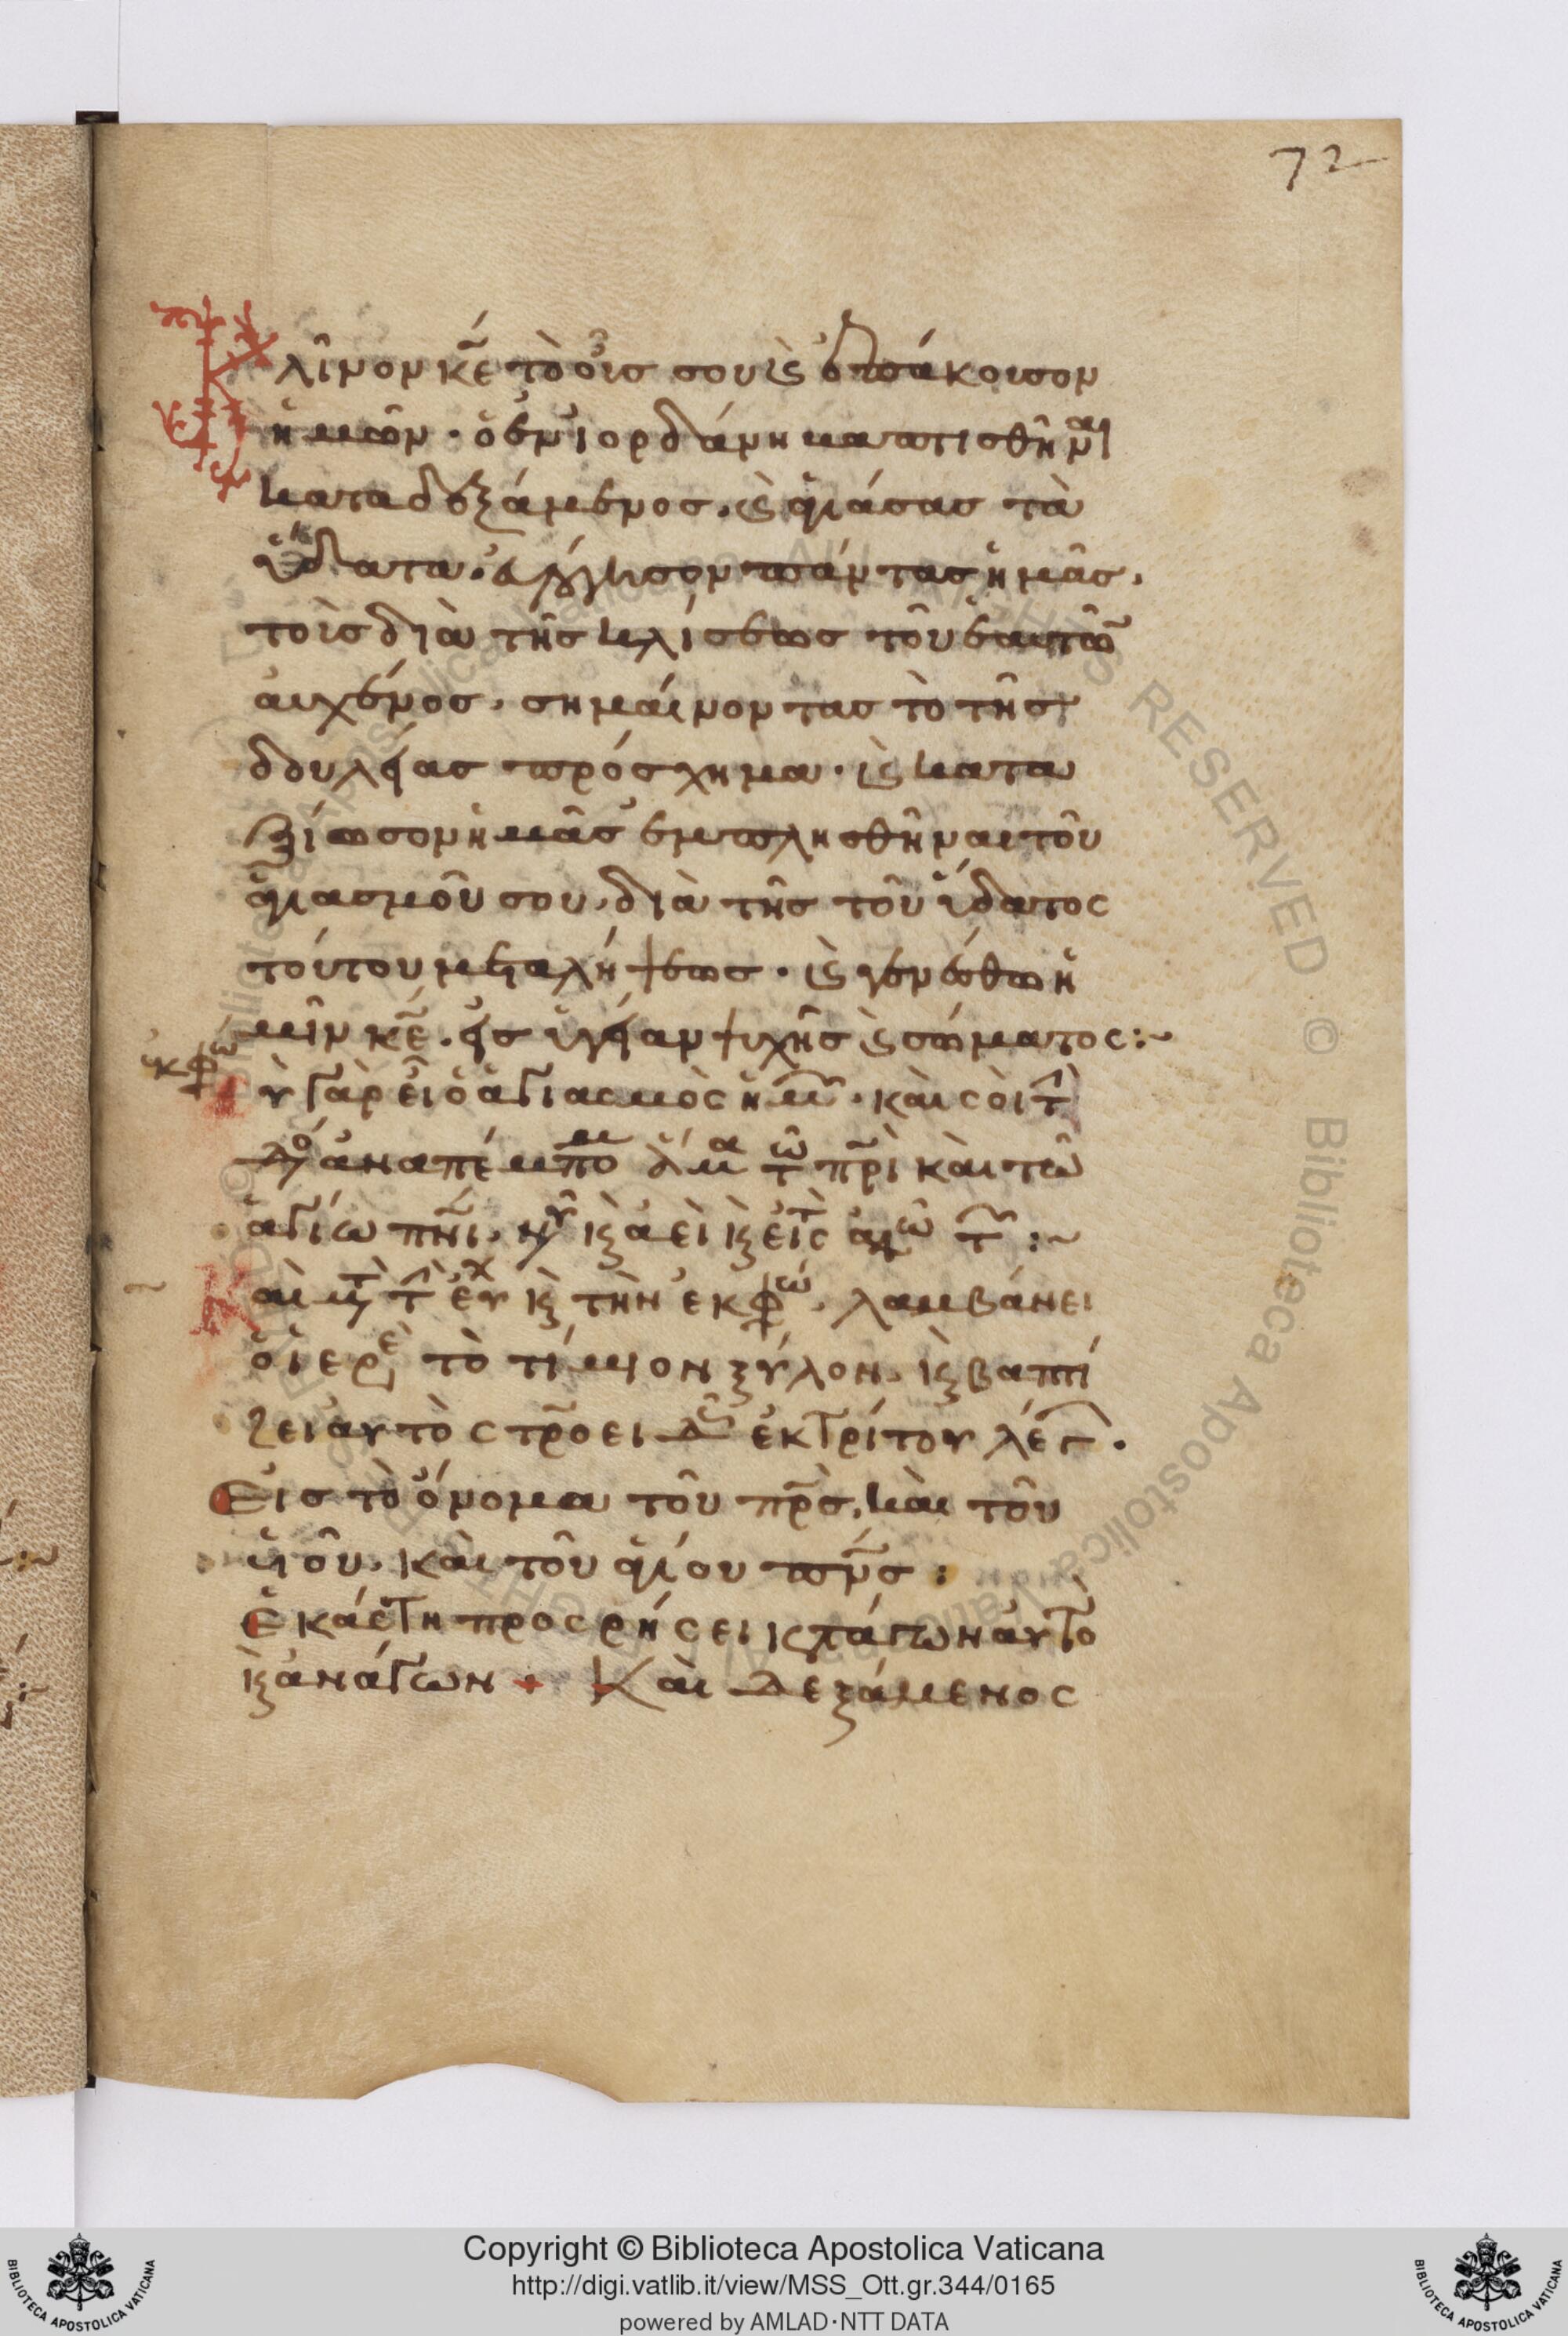 72
Κλῖνον κε̄ τὸ οὖς σου (καὶ) ἐπάκουσον
ἡμῶν · ὁ ἐν ἰορδάνη βαπτισθῆναι
καταδεξάμενος. (καὶ) ἁγιάσας τὰ
ὕδατα. εὐλόγησον πάντας ἡμᾶς.
τοὺς διὰ τῆς κλίσεως τοῦ ἑαυτῶν
αὐχένος. σημαίνοντας τὸ τῆς
δουλείας πρόσχημα. (καὶ) κατα
ξίωσον ἡμᾶς ἐμπλησθῆναι τοῦ
ἁγιασμοῦ σου. διὰ τῆς τοῦ ὕδατος
τούτου μεταλήψεως. (καὶ) γενέσθω ἡ
μῖν κε̄. εἰς ὑγείαν ψυχῆς (καὶ) σώματος :~
ἐκφώ
ὺ γὰρ εἶ ὁ ἁγιασμὸς ἡμ. καὶ σοὶ τ
δό ἀναπέμπο ἅμα τῶ πρι καὶ τῶ
ἁγίω πνι. νῦ κ ἀεὶ κ εἰς τ αἰῶ τ :~
Καὶ μτ τ εὐχ κ τὴν ἐκφώ. λαμβάνει
ὁ ἱερε τὸ τίμιον ξύλον. κ βαπτί
ζει αὐτὸ στροειδῶς ἐκ τρίτου λέγ.
Εἰς τὸ ὄνομα τοῦ πρς. καὶ τοῦ
υἱοῦ. καὶ τοῦ ἁγίου πνς :
Ἑκάστη προσρήσει κατάγων αὐτὸ
κ ἀνάγων + Καὶ δεξάμενος
© Biblioteca Apostolica Vaticana ALL RIGHTS RESERVED
Copyright © Biblioteca Apostolica Vaticana
http://digi.vatlib.it/view/MSS_Ott.gr.344/0165
powered by AMLAD·NTT DATA
BIBLIOTECA APOSTOLICA VATICANA
BIBLIOTECA APOSTOLICA VATICANA